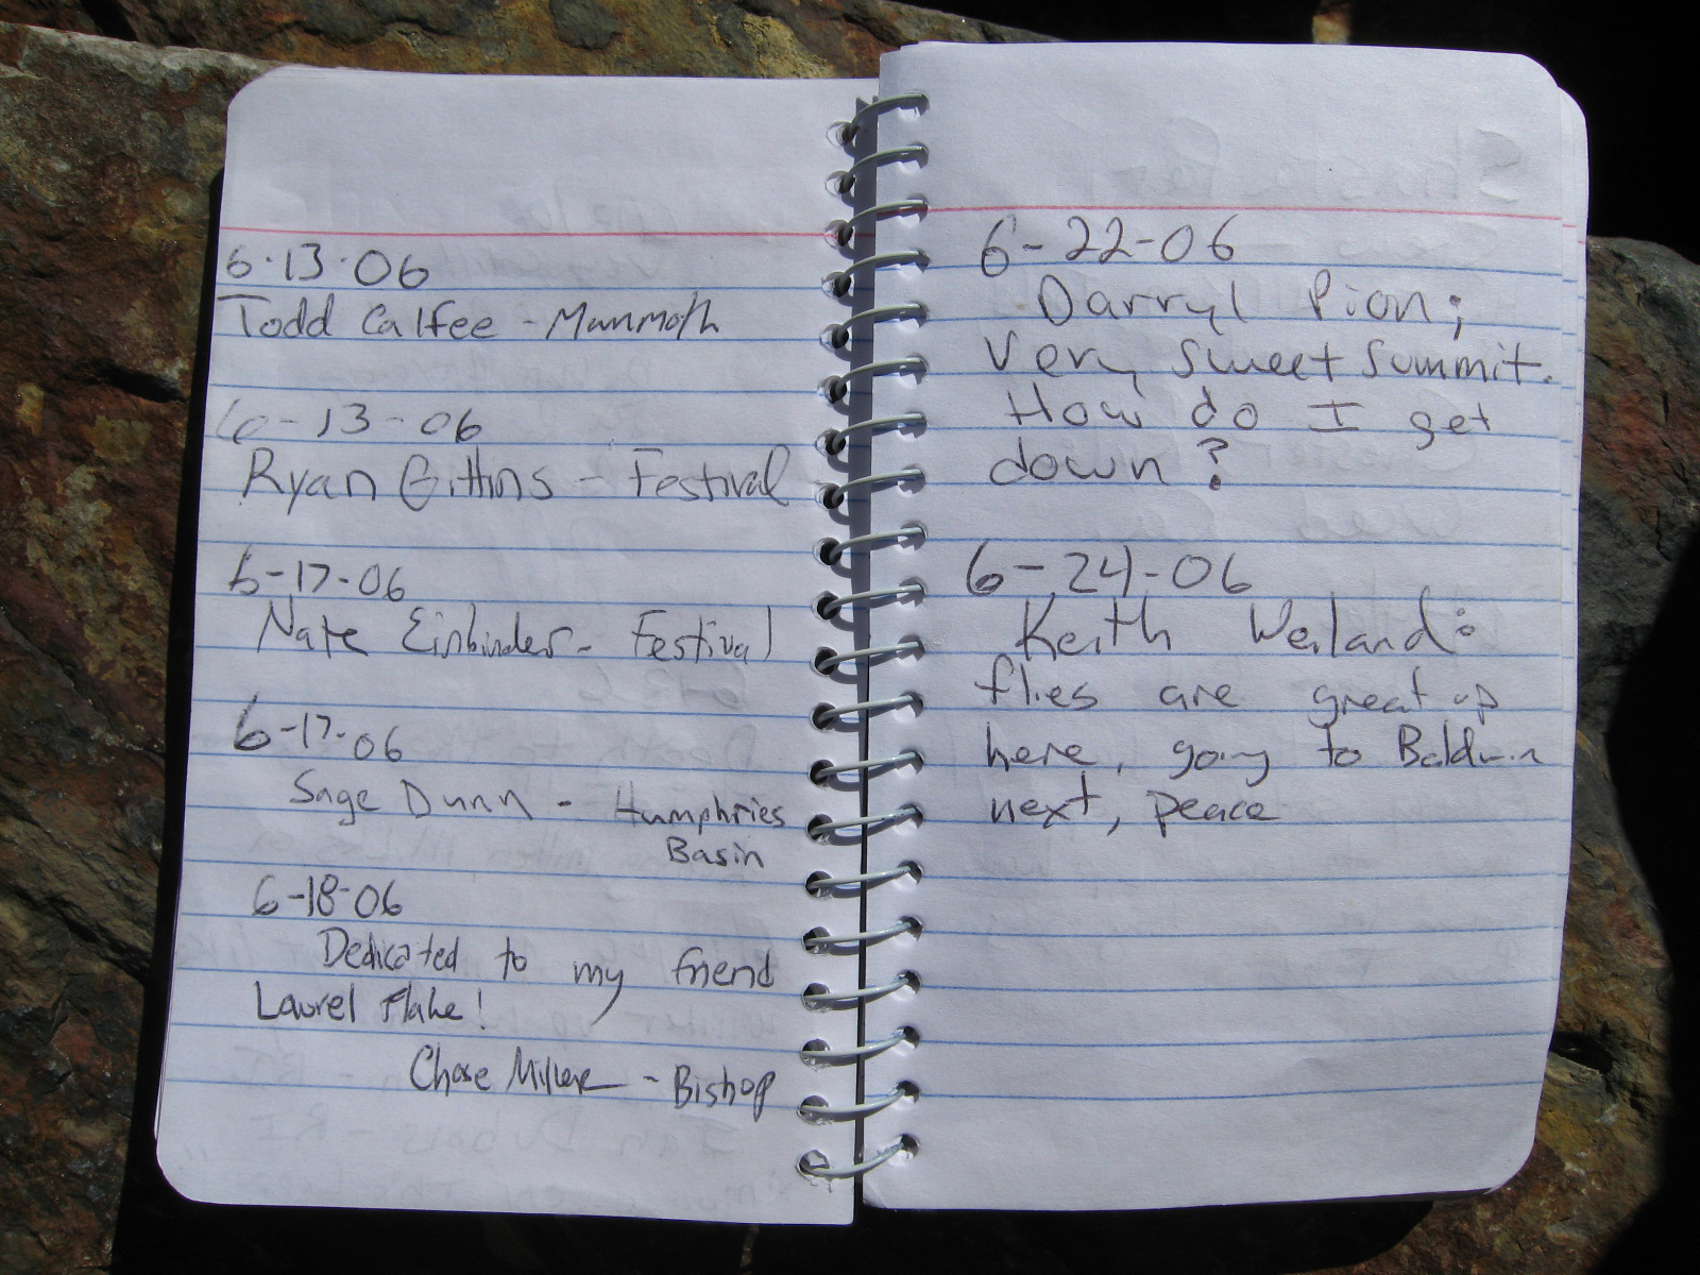 6·13·06
Todd Calfee - Mammoth
6-13-06
Ryan Gittins - Festival
6-17-06
Nate Einbinder - Festival
6-17-06
Sage Dunn - Humphries
Basin
6-18-06
Dedicated to my friend
Laurel Flake!
Chase Miller - Bishop
6-22-06
Darryl Pion;
Very sweet summit.
How do I get
down?
6-24-06
Keith Weiland:
flies are great up
here, going to Baldwin
next, peace